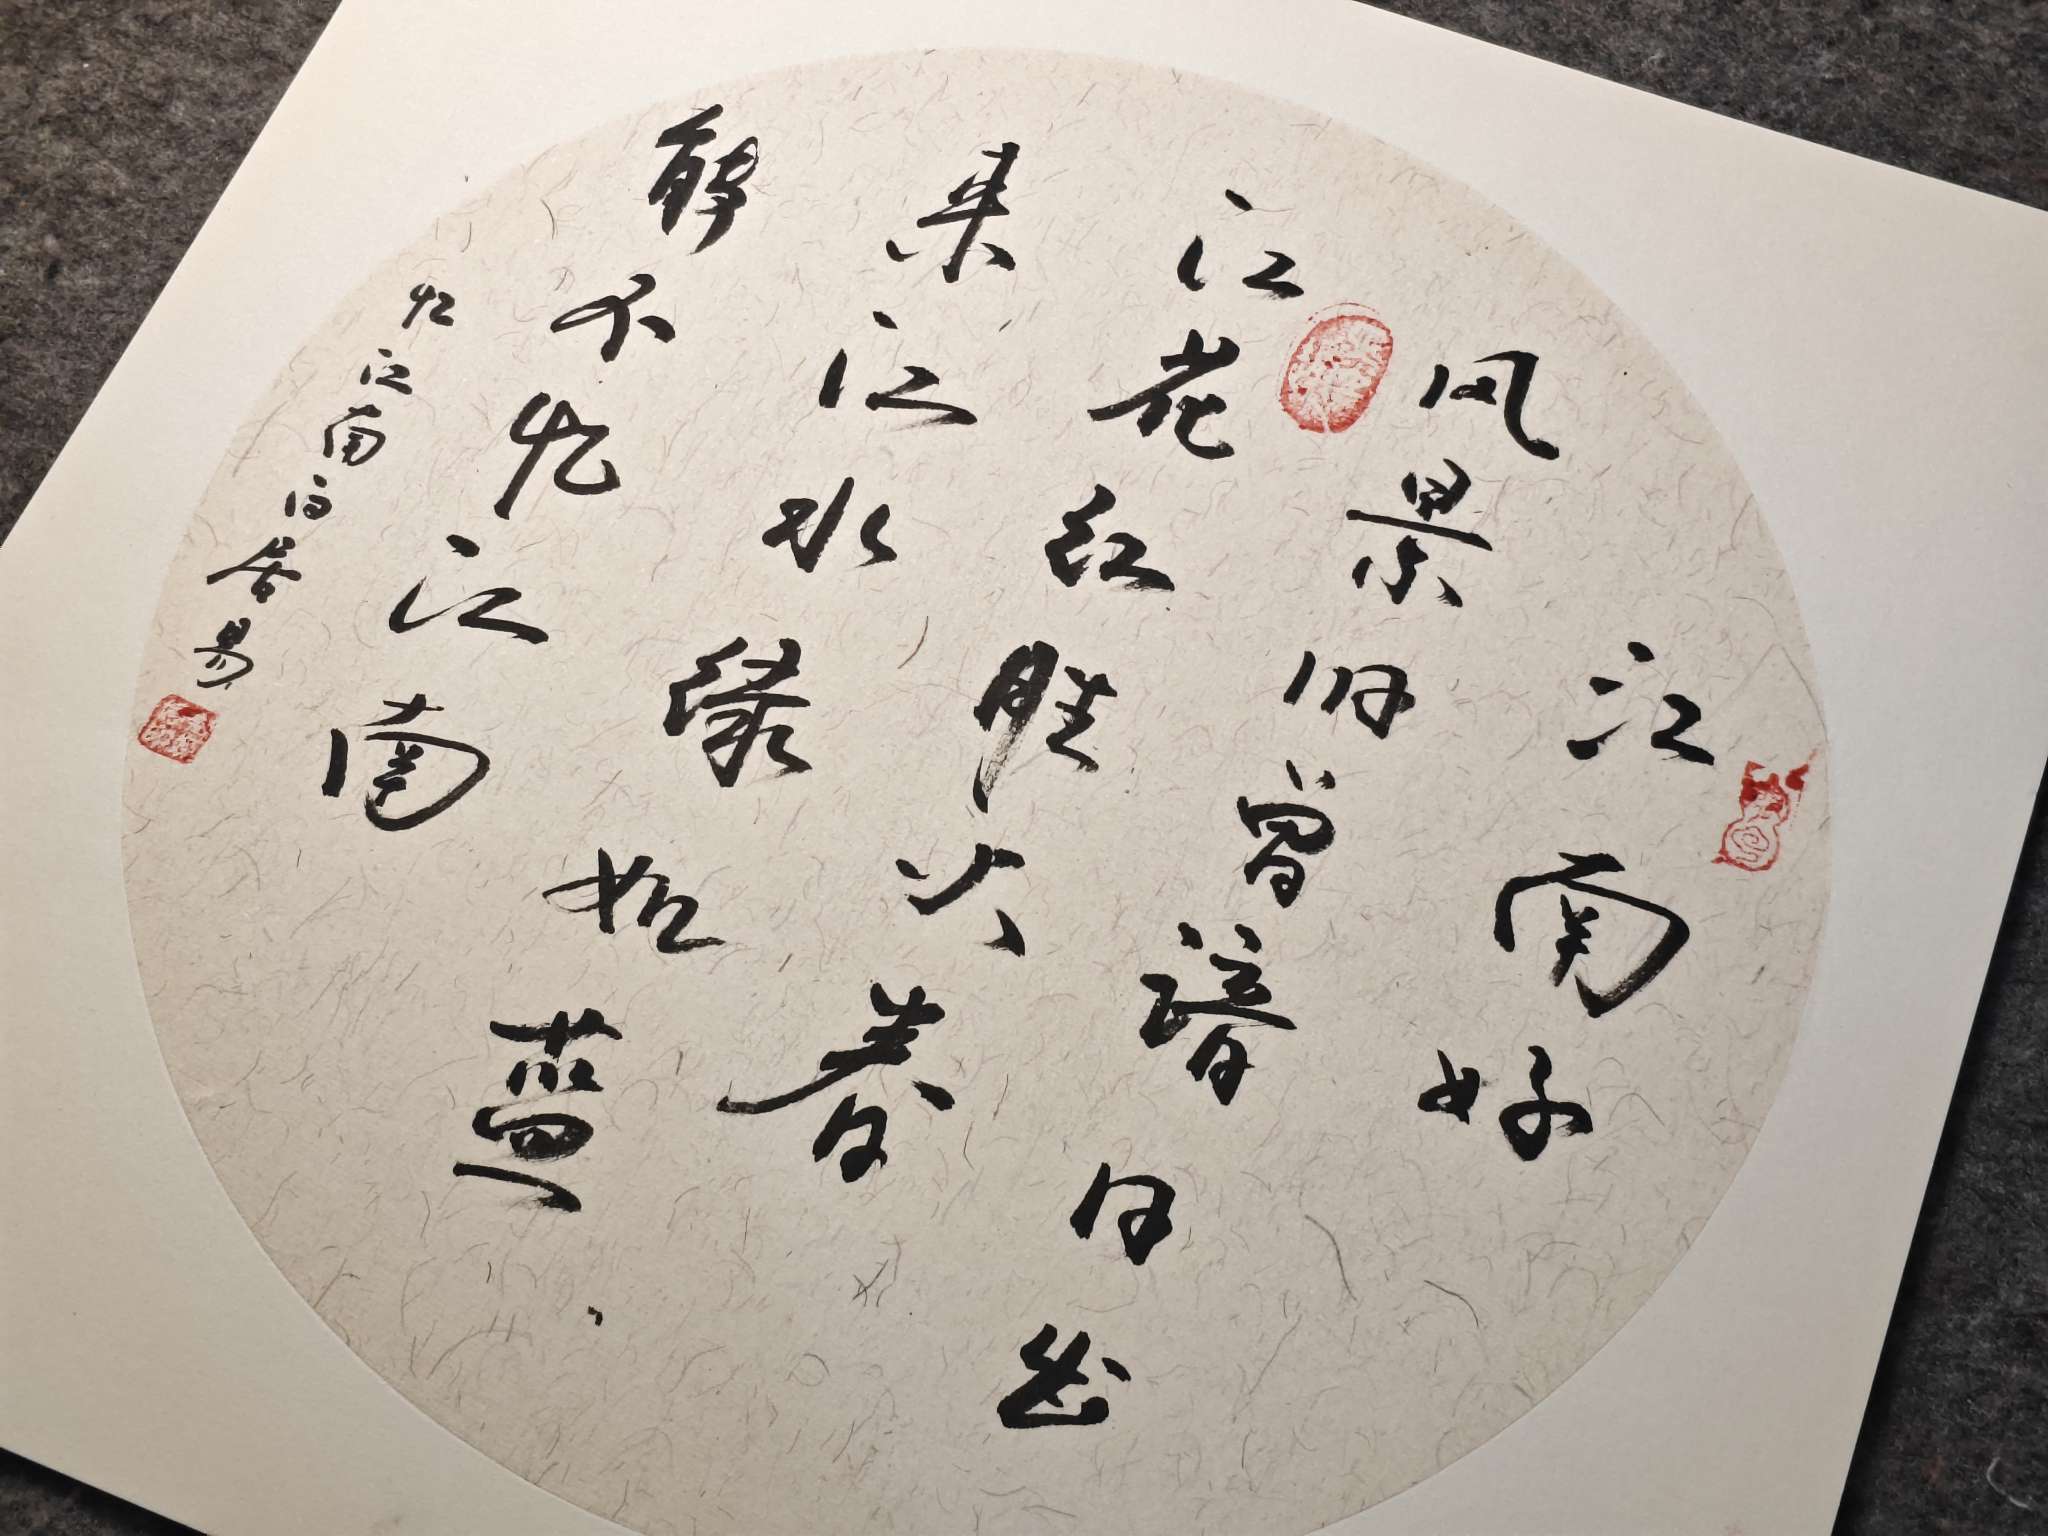 江南好
风景旧曾谙日出
江花红胜火春
来江水绿如蓝、
能不忆江南
忆江南白居易